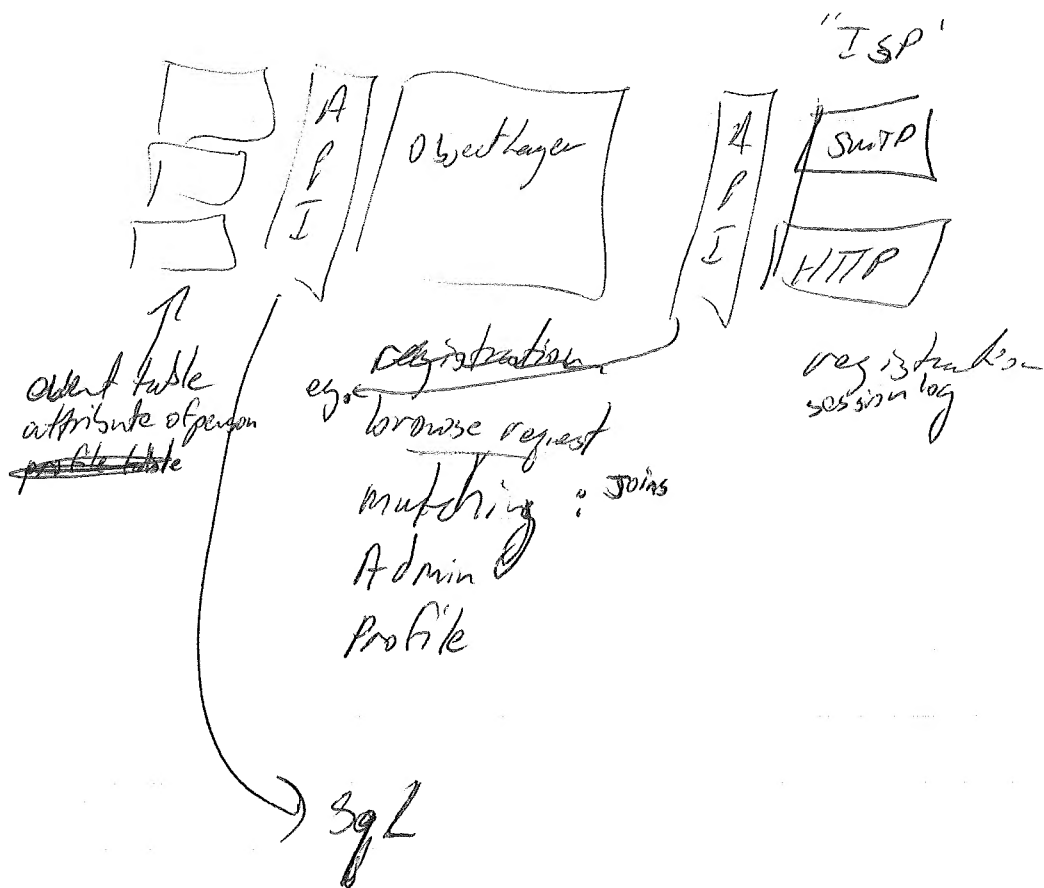 "ISP'
API
Object Layer
API
SMTP
HTTP
event table
attribute of person
profile table
eg.
registration
browse request
matching : Joins
Admin
Profile
registration
session log
SqL